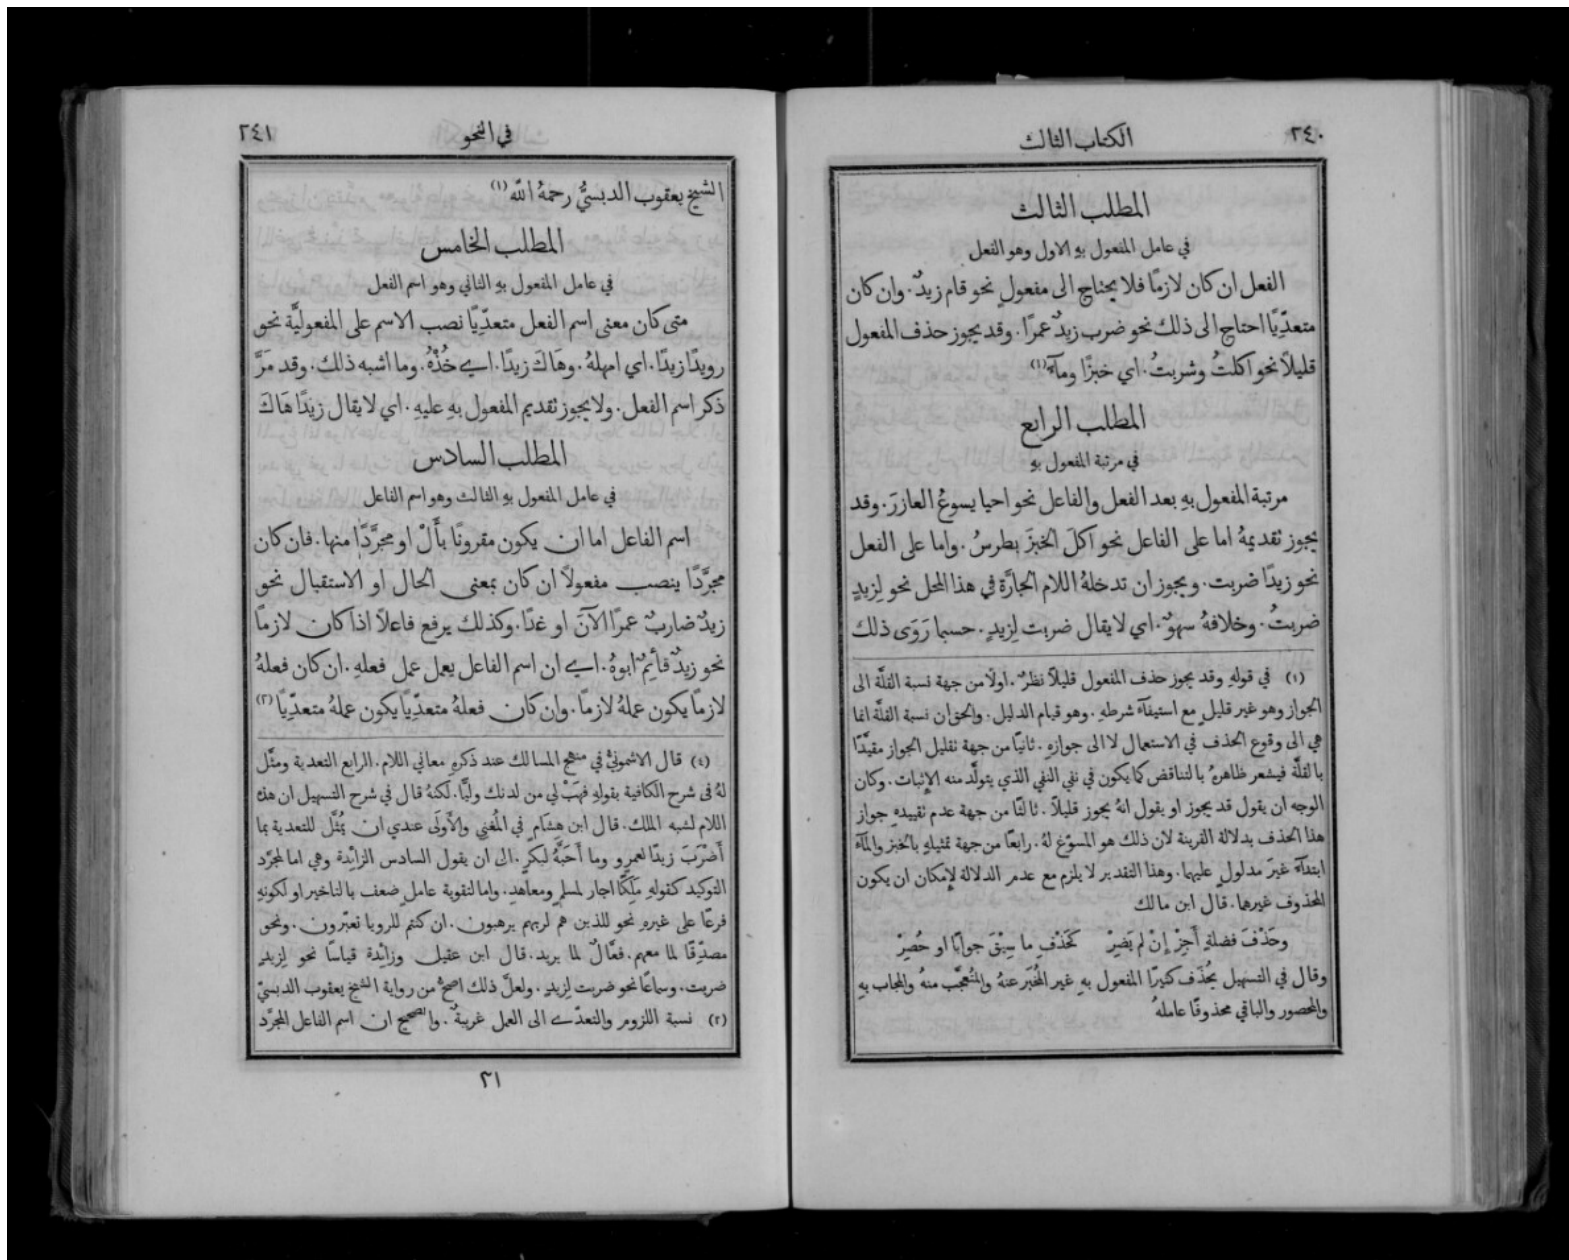 ٢٤٠
الكتاب الثالث
المطلب الثالث
في عامل المفعول بهِ الاول وهو الفعل
الفعل ان كان لازمًا فلا يحتاج الى مفعولٍ نحو قام زيدٌ. وان كان
متعدِّيًا احتاج الى ذلك نحو ضرب زيدٌ عمرًا. وقد يجوز حذف المفعول
قليلاً نحو اكلتُ وشربتُ. اي خبزًا ومآءً (١)
المطلب الرابع
في مرتبة المفعول بهِ
مرتبة المفعول بهِ بعد الفعل والفاعل نحو احيا يسوعُ العازرَ. وقد
يجوز تقديمهُ اما على الفاعل نحو اكلَ الخبزَ بطرسُ. واما على الفعل
نحو زيدًا ضربت. ويجوز ان تدخلهُ اللام الجارَّة في هذا المحل نحو لِزيدٍ
ضربتُ. وخلافهُ سهوٌ. اي لا يقال ضربت لِزيدٍ. حسبما رَوَى ذلك
(١) في قولهِ وقد يجوز حذف المفعول قليلاً نظرٌ. اولاً من جهة نسبة القلَّة الى
الجواز وهو غير قليلٍ مع استيفآء شرطهِ. وهو قيام الدليل. والحق ان نسبة القلَّة انما
هي الى وقوع الحذف في الاستعمال لا الى جوازهِ. ثانيًا من جهة تقليل الجواز مقيَّدًا
بالقلَّة فيشعر ظاهرهُ بالتناقض كما يكون في نفي النفي الذي يتولَّد منه الإثبات. وكان
الوجه ان يقول قد يجوز او يقول انهُ يجوز قليلاً. ثالثًا من جهة عدم تقييدهِ جواز
هذا الحذف بدلالة القرينة لان ذلك هو المسوّغ لهُ. رابعًا من جهة تمثيلهِ بالخبز والمآء
ابتدآءً غيرَ مدلولٍ عليهما. وهذا التقدير لا يلزم مع عدم الدلالة لإمكان ان يكون
المحذوف غيرهما. قال ابن مالك
وحَذْفَ فضلةٍ أَجِزْ إنْ لم يَضِرْ كَحَذْفِ ما سِيْقَ جوابًا او حُصِرْ
وقال في التسهيل يُحْذَف كثيرًا المفعول بهِ غير المُخْبَر عنهُ والمُتَعَجَّب منهُ والمجاب بهِ
والمحصور والباقي محذوفًا عاملهُ
في النحو
٢٤١
الشيخ يعقوب الدبسيُّ رحمهُ اللّٰه (١)
المطلب الخامس
في عامل المفعول بهِ الثاني وهو اسم الفعل
متى كان معنى اسم الفعل متعدِّيًا نصب الاسم على المفعوليَّة نحو
رويدًا زيدًا. اي امهلهُ. وهَاكَ زيدًا. اي خُذْهُ. وما اشبه ذلك. وقد مَرَّ
ذكر اسم الفعل. ولا يجوز تقديم المفعول بهِ عليهِ. اي لا يقال زيدًا هَاكَ
المطلب السادس
في عامل المفعول بهِ الثالث وهو اسم الفاعل
اسم الفاعل اما ان يكون مقرونًا بأَلْ او مجرَّدًا منها. فان كان
مجرَّدًا ينصب مفعولاً ان كان بمعنى الحال او الاستقبال نحو
زيدٌ ضاربٌ عمرًا الآنَ او غدًا. وكذلك يرفع فاعلاً اذا كان لازمًا
نحو زيدٌ قأيمٌ ابوهُ. اي ان اسم الفاعل يعمل عمل فعلهِ. ان كان فعلهُ
لازمًا يكون عملهُ لازمًا. وان كان فعلهُ متعدِّيًا يكون عملهُ متعدِّيًا (٢)
(٤) قال الاشمونيُّ في منهج المسالك عند ذكرهِ معاني اللام. الرابع التعدية ومثَّل
لهُ في شرح الكافية بقولهِ فهَبْ لي من لدنك وليًّا. لكنهُ قال في شرح التسهيل ان هذه
اللام لشبه الملك. قال ابن هشام في المُغني والأَولَى عندي ان يُمثَّل للتعدية بما
أَضْرَبَ زيدًا لعمرٍو وما أَحَبَّهُ لبكرٍ. الى ان يقول السادس الزائدة وهي اما لمجرّد
التوكيد كقولهِ مَلِكًا اجار لمسلمٍ ومعاهدِ. واما لتقوية عاملٍ ضعف بالتاخير او لكونهِ
فرعًا على غيرهِ نحو للذين هم لربهم يرهبون. ان كنتم للرويا تعبّرون. ونحو
مصدِّقًا لما معهم. فعَّالٌ لما يريد. قال ابن عقيل وزائدة قياسًا نحو لِزيدٍ
ضربت. وسماعًا نحو ضربت لِزيدٍ. ولعلَّ ذلك اصحُّ من رواية الشيخ يعقوب الدبسيّ
(٢) نسبة اللزوم والتعدّي الى العمل غريبةٌ. والصحيح ان اسم الفاعل المجرّد
٣١